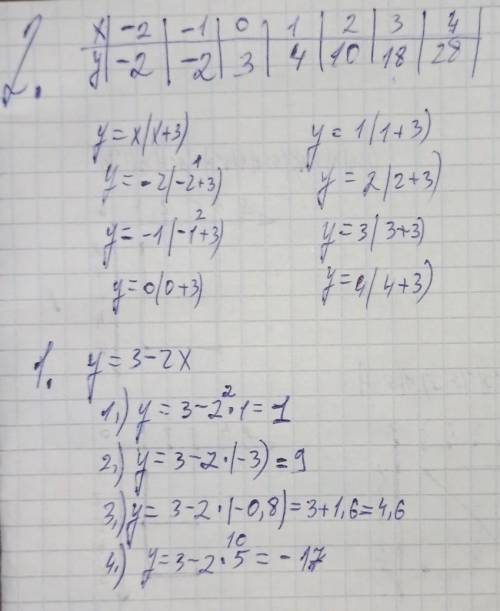 2.
x | -2 | -1 | 0 | 1 | 2 | 3 | 4
y | -2 | -2 | 3 | 4 | 10 | 18 | 28
y = x(x+3)
y = -2(-2+3) 1
y = -1(-1+3) 2
y = 0(0+3)
y = 1(1+3)
y = 2(2+3)
y = 3(3+3)
y = 4(4+3)
1. y = 3-2x
1.) y = 3-2·1 = 1 2
2.) y = 3-2·(-3) = 9
3.) y = 3-2·(-0,8) = 3+1,6 = 4,6
4.) y = 3-2·5 = -17 10